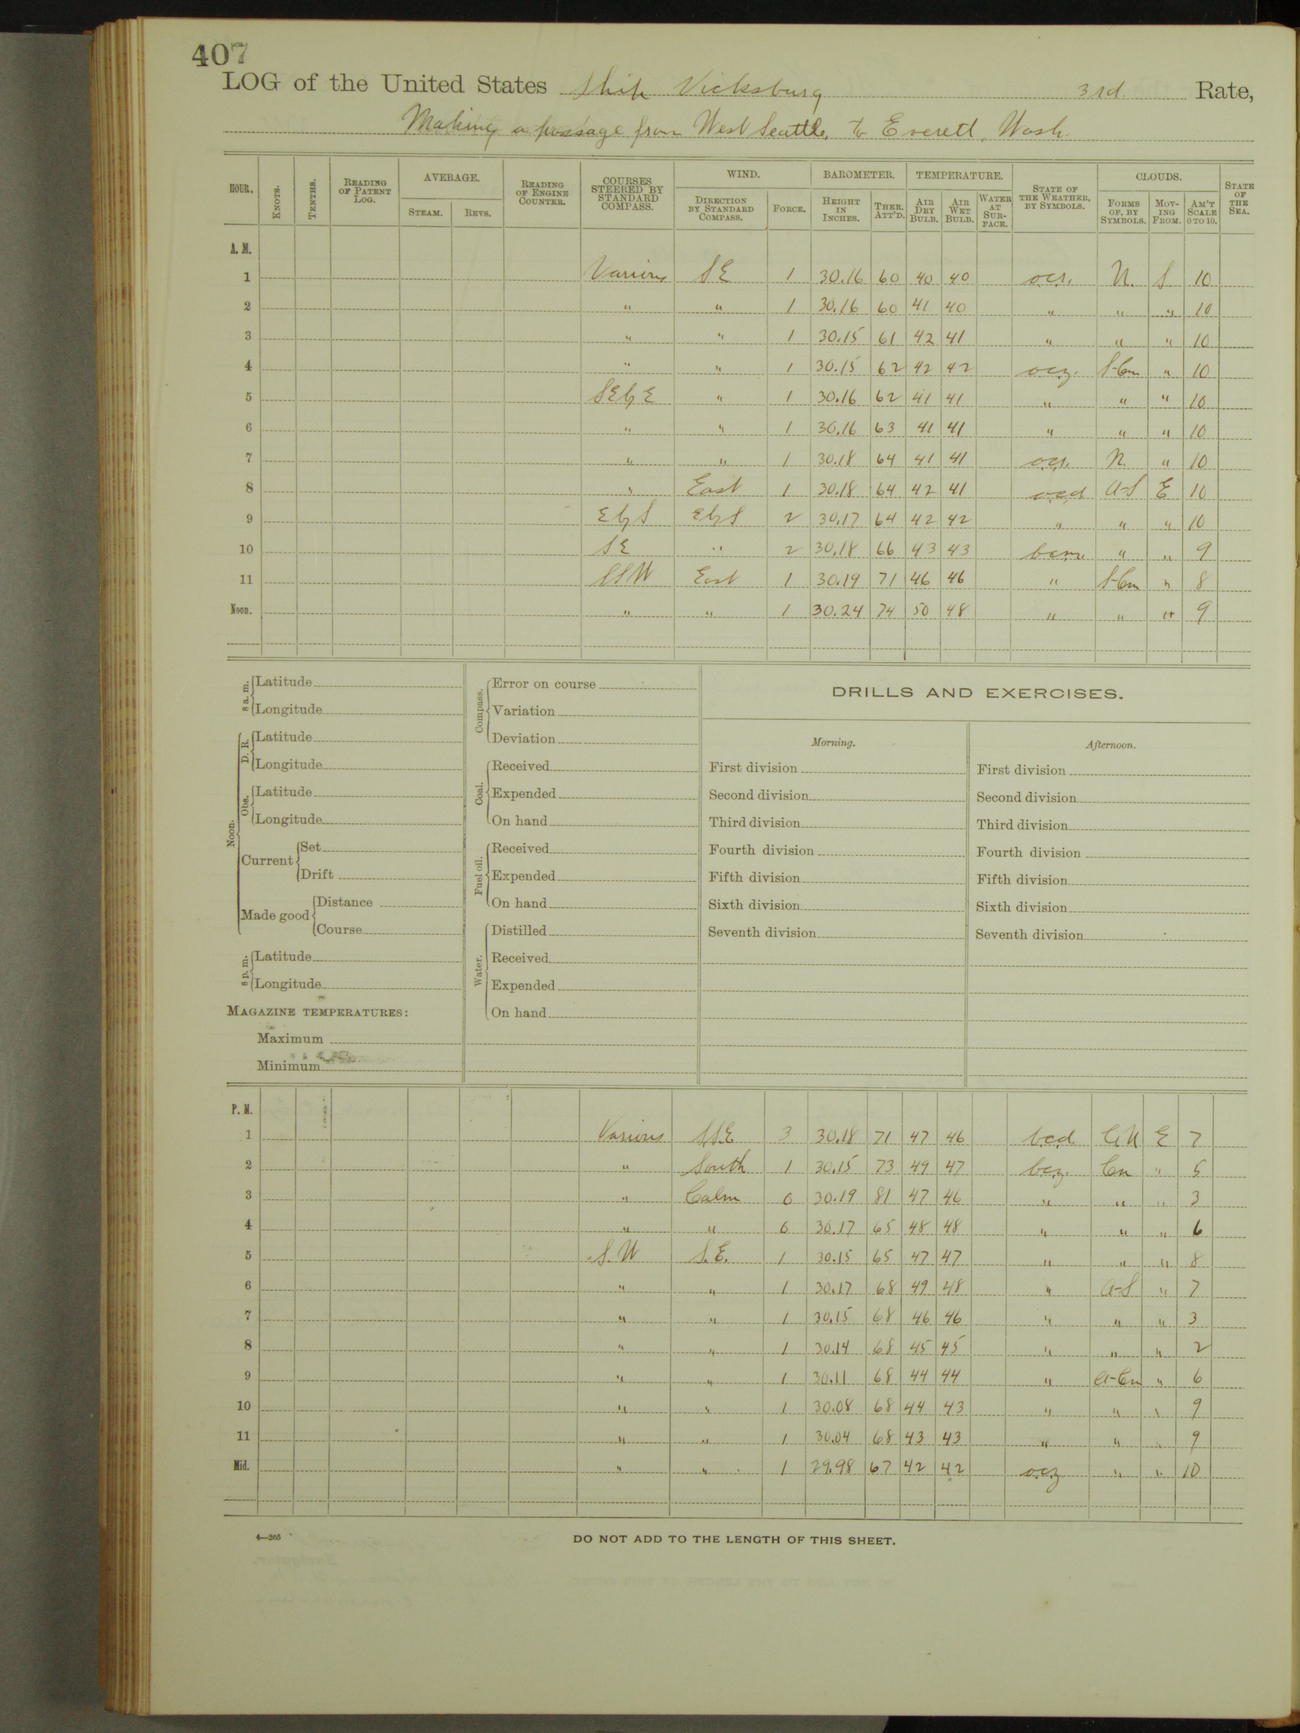 407
LOG of the United States Ship Vicksburg 3rd Rate,
Making a passage from West Seattle, to Everett, Wash.
HOUR. KNOTS. TENTHS. READING OF PATENT LOG. AVERAGE. STEAM. REVS. READING OF ENGINE COUNTER. COURSES STEERED BY STANDARD COMPASS. WIND. DIRECTION BY STANDARD COMPASS. FORCE. BAROMETER. HEIGHT IN INCHES. THER. ATT'D. TEMPERATURE. AIR DRY BULB. AIR WET BULB. WATER AT SURFACE. STATE OF THE WEATHER, BY SYMBOLS. CLOUDS. FORMS OF, BY SYMBOLS. MOVING FROM. AM'T SCALE 0 TO 10. STATE OF THE SEA.
A. M.
1 Various SE 1 30.16 60 40 40 ocr. N. S 10
2 " " 1 30.16 60 41 40 " " " 10
3 " " 1 30.15 61 42 41 " " " 10
4 " " 1 30.15 62 42 42 ocz. S-Cu " 10
5 SExE " 1 30.16 62 41 41 " " " 10
6 " " 1 30.16 63 41 41 " " " 10
7 " " 1 30.18 64 41 41 ocr. N. " 10
8 " East 1 30.18 64 42 41 ocd A-S E 10
9 ExS ExS 2 30.17 64 42 42 " " " 10
10 SE " 2 30.18 66 43 43 bcm. " " 9
11 SSW East 1 30.19 71 46 46 " S-Cu " 8
Noon. " " 1 30.24 74 50 48 " " " 9
8 a. m. Latitude
Longitude
Noon. D. R. Latitude
Longitude
Obs. Latitude
Longitude
Current Set
Drift
Made good Distance
Course
8 p. m. Latitude
Longitude
MAGAZINE TEMPERATURES:
Maximum
Minimum
Compass. Error on course
Variation
Deviation
Coal. Received
Expended
On hand
Fuel oil. Received
Expended
On hand
Water. Distilled
Received
Expended
On hand
DRILLS AND EXERCISES.
Morning.
First division
Second division
Third division
Fourth division
Fifth division
Sixth division
Seventh division
Afternoon.
First division
Second division
Third division
Fourth division
Fifth division
Sixth division
Seventh division
P. M.
1 Various SSE 3 30.18 71 47 46 bcd CN E 7
2 " South 1 30.15 73 49 47 bcz. Cu " 5
3 " Calm 0 30.19 81 47 46 " " " 3
4 " " 0 30.17 65 48 48 " " " 6
5 S.W S.E. 1 30.15 65 47 47 " " " 8
6 " " 1 30.17 68 49 48 " A-S " 7
7 " " 1 30.15 68 46 46 " " " 3
8 " " 1 30.14 68 45 45 " " " 2
9 " " 1 30.11 68 44 44 " A-Cu " 6
10 " " 1 30.08 68 44 43 " " " 9
11 " " 1 30.04 68 43 43 " " " 9
Mid. " " 1 29.98 67 42 42 ocz " " 10
4—265
DO NOT ADD TO THE LENGTH OF THIS SHEET.